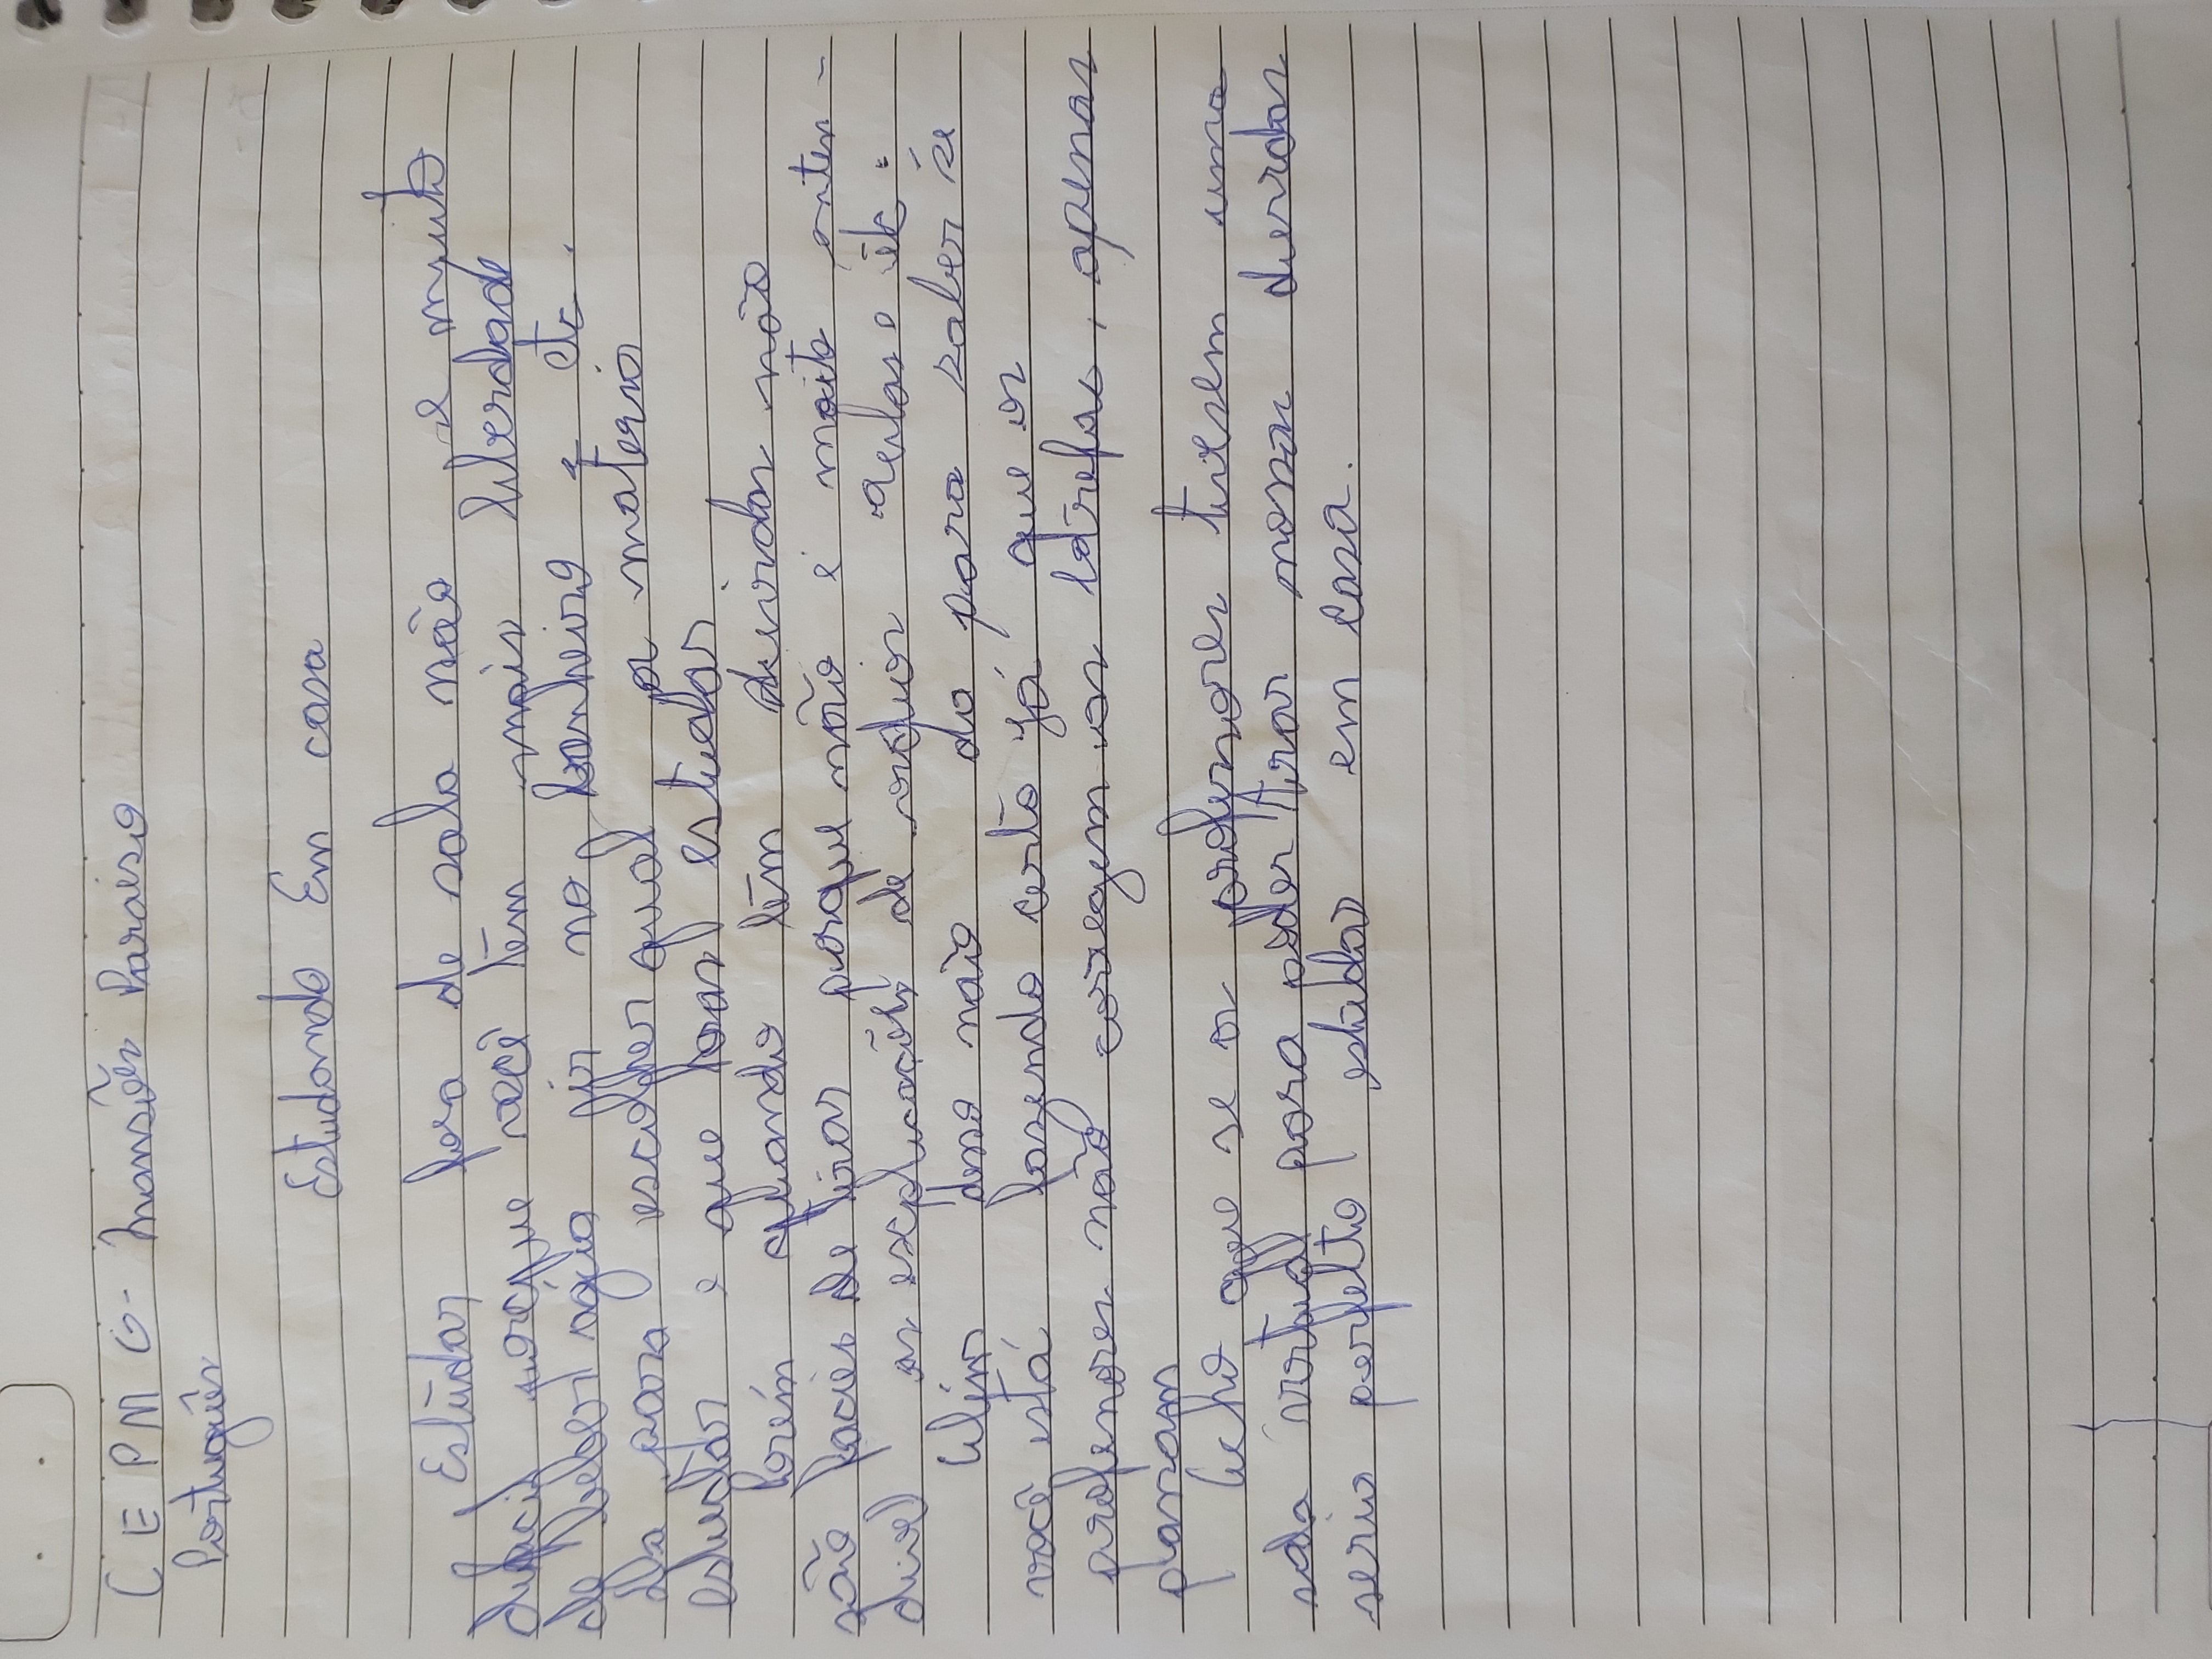 CEPMG - Mansões Paraiso
Português
Estudando Em casa
Estudar fora de sala não e muito
dificil porque você têm mais liberdade
de beber agua ir no banheiro e etc.
Da para escolher qual a materia
estudar e que horas estudar.
Porém quando têm duvidas não
são faceis de tirar porque não é muito enten-
divel as explicações de video aulas e etc.
Além disso não da para saber se
você está fazendo certo já que os
professores não corregem as tarefas, apenas
passam
Acho que se os professores tivesem uma
sala virtual para poder tirar nossas duvidas
seria perfeito estudar em casa.